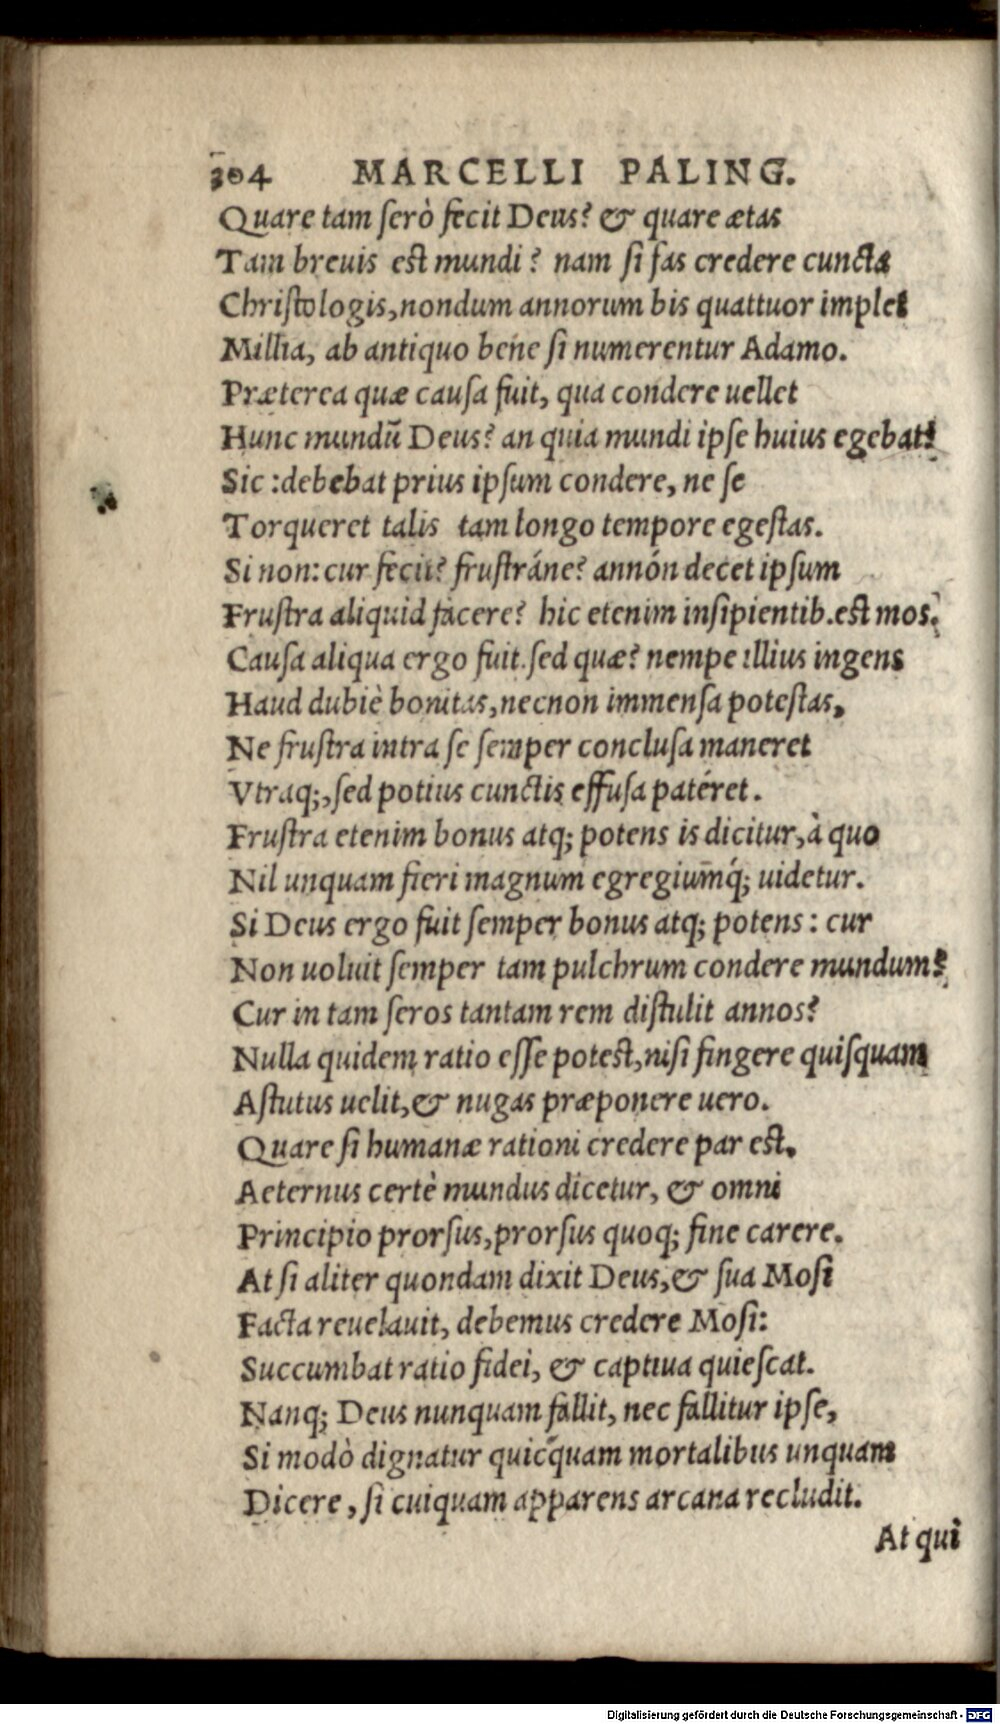 304 MARCELLI PALING.
Quare tam ſerò fecit Deus? & quare ætas
Tam breuis est mundi? nam ſi fas credere cuncta
Chriſtologis, nondum annorum bis quattuor implet
Millia, ab antiquo bene ſi numerentur Adamo.
Præterea quæ cauſa fuit, qua condere uellet
Hunc mundũ Deus? an quia mundi ipſe huius egebat?
Sic: debebat prius ipſum condere, ne ſe
Torqueret talis tam longo tempore egeſtas.
Si non: cur fecit? fruſtráne? annón decet ipſum
Fruſtra aliquid facere? hic etenim inſipientib. est mos.
Cauſa aliqua ergo fuit. ſed quæ? nempe illius ingens
Haud dubiè bonitas, necnon immenſa poteſtas,
Ne fruſtra intra ſe ſemper concluſa maneret
Vtraq;, ſed potius cunctis effuſa patéret.
Fruſtra etenim bonus atq; potens is dicitur, à quo
Nil unquam fieri magnum egregium̄q́; uidetur.
Si Deus ergo fuit ſemper bonus atq; potens: cur
Non uoluit ſemper tam pulchrum condere mundum?
Cur in tam ſeros tantam rem diſtulit annos?
Nulla quidem ratio eſſe potest, niſi fingere quiſquam
Aſtutus uelit, & nugas præponere uero.
Quare ſi humanæ rationi credere par est.
Aeternus certè mundus dicetur, & omni
Principio prorſus, prorſus quoq; fine carere.
At ſi aliter quondam dixit Deus, & ſua Moſi
Facta reuelauit, debemus credere Moſi:
Succumbat ratio fidei, & captiua quieſcat.
Nanq; Deus nunquam fallit, nec fallitur ipſe,
Si modò dignatur quicq̃uam mortalibus unquam
Dicere, ſi cuiquam apparens arcana recludit.
At qui
Digitalisierung gefördert durch die Deutsche Forschungsgemeinschaft - DFG